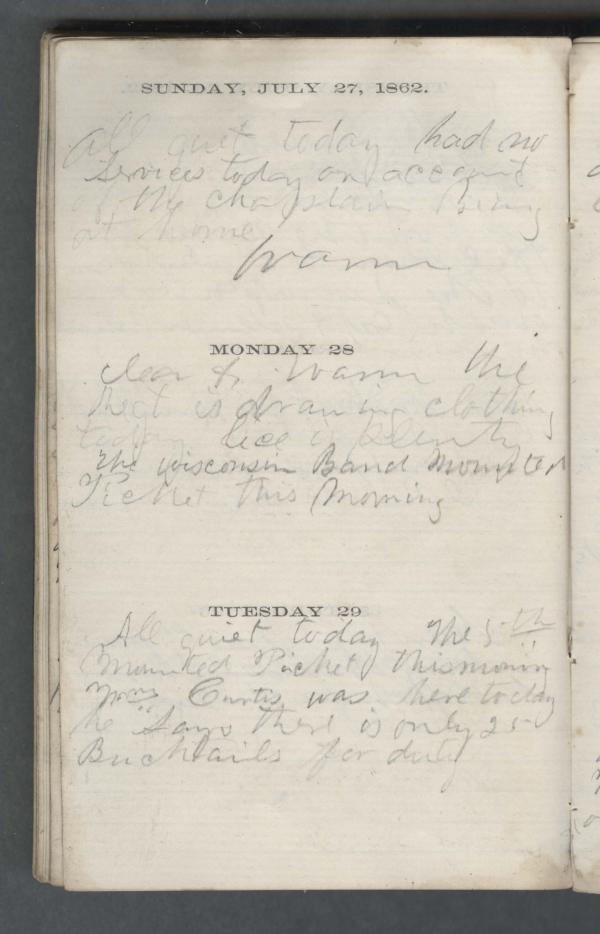 SUNDAY, JULY 27, 1862.
All quiet today had no
Services today on account
of the chaplain being
at home
Warm
MONDAY 28
clear & Warm the
Regt is drawing clothing
today lice is plenty
The wisconsin Band Mounted
Picket this Morning
TUESDAY 29
All quiet today The 5th
Mounted Picket this morning
Curtis was here today
he Says there is only 25
Bucktails for duty